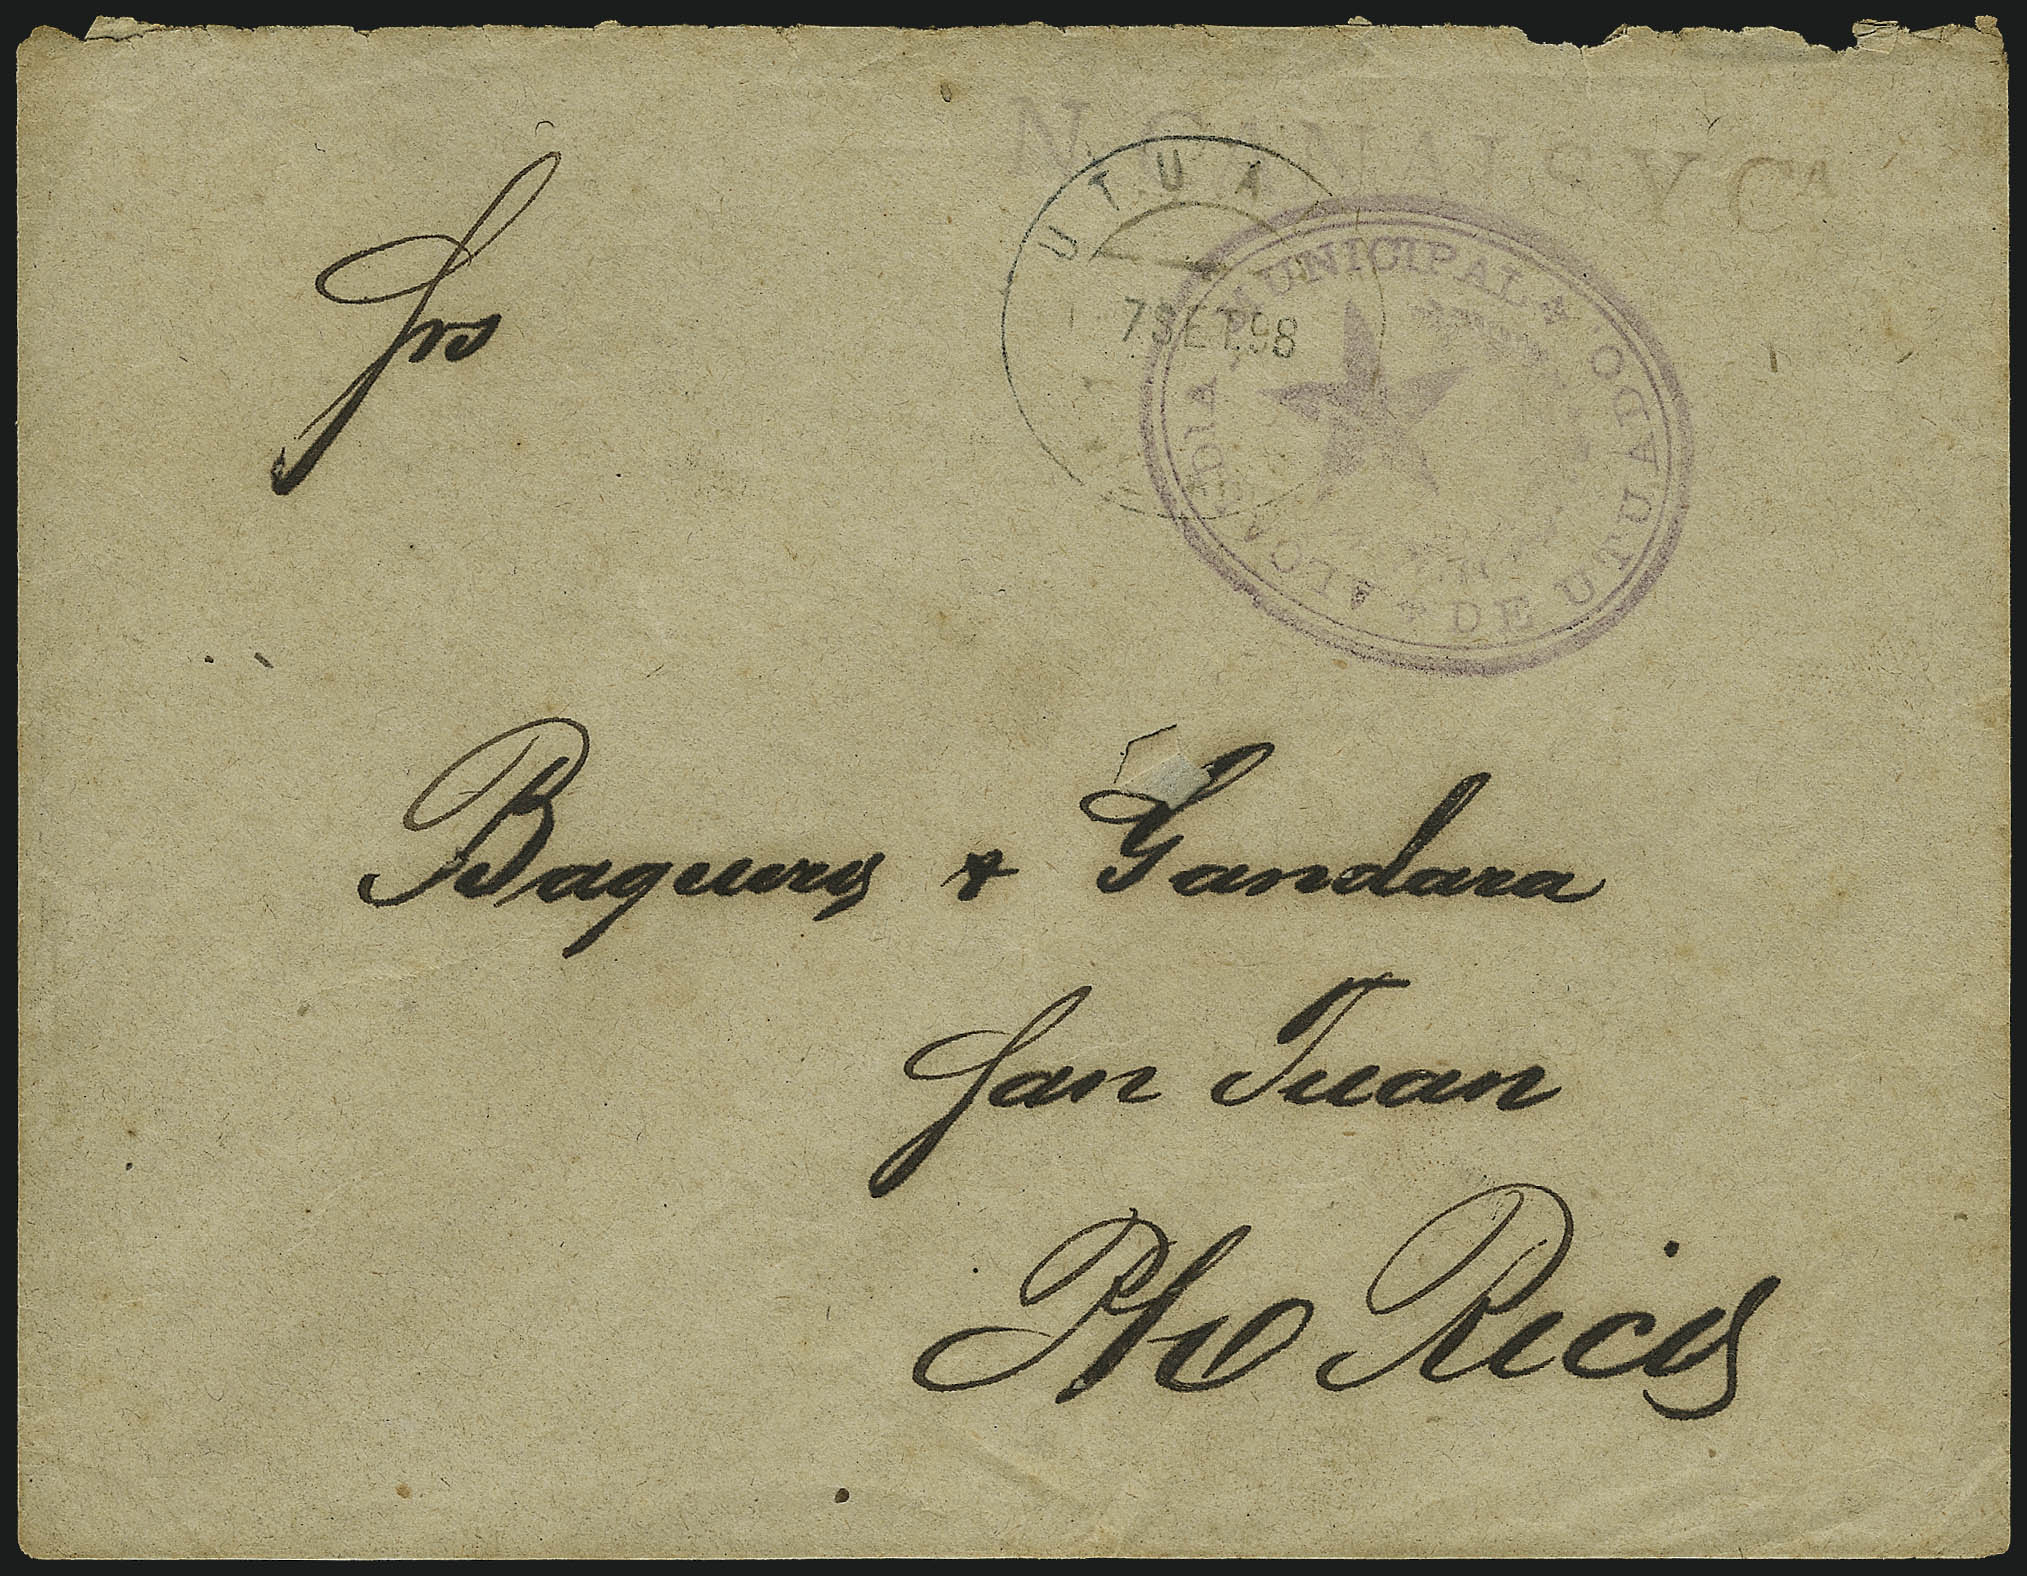 N. CANALS Y Cª
UTUA
7 SET 98
ALCALDIA MUNICIPAL
DE UTUADO
Srs
Baquero & Gandara
San Juan
Pto Rico